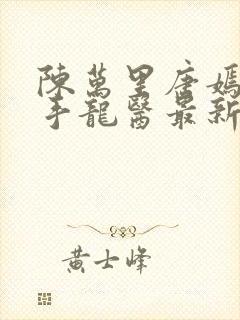 陳萬里唐嫣
手龍醫最新
黃士峰